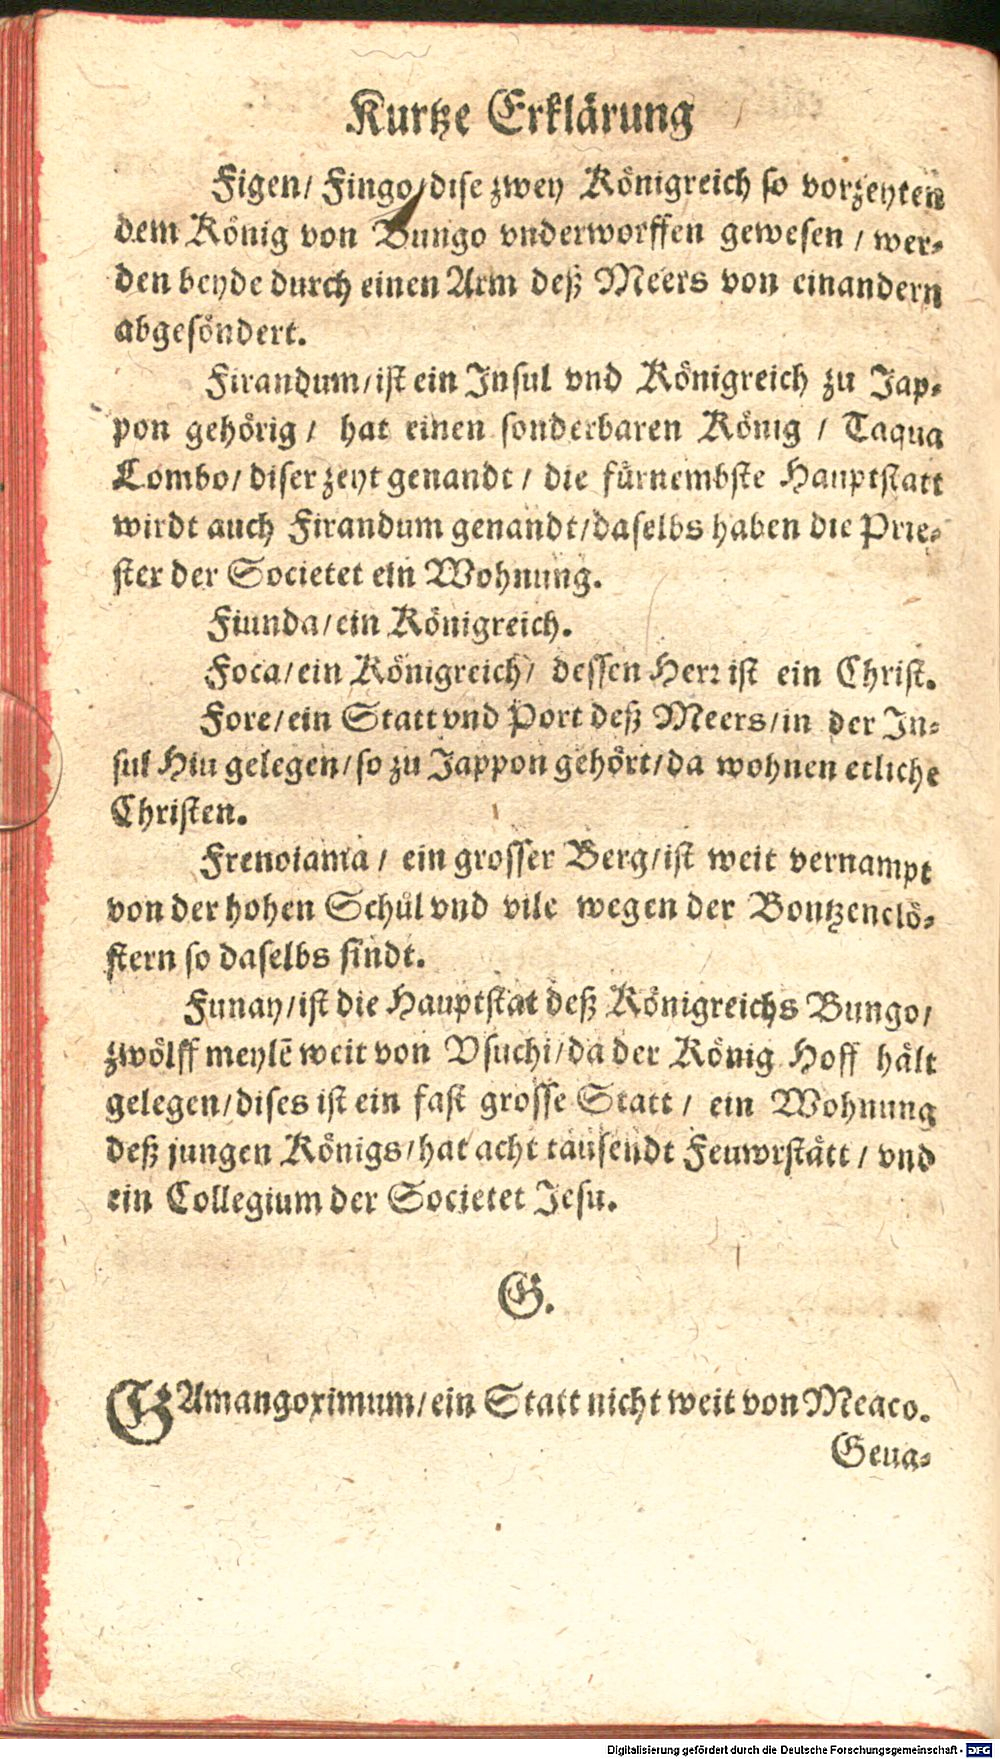 Kurtze Erklärung
Figen/ Fingo/dise zwey Königreich so vorzeyten
dem König von Bungo vnderworffen gewesen / wer-
den beyde durch einen Arm deß Meers von einandern
abgesöndert.
Firandum/ist ein Insul vnd Königreich zu Jap-
pon gehörig / hat einen sonderbaren König / Taqua
Combo/ diser zeyt genandt / die fürnembste Hauptstatt
wirdt auch Firandum genandt/daselbs haben die Prie-
ster der Societet ein Wohnung.
Fiunda/ein Königreich.
Foca/ein Königreich/ dessen Herr ist ein Christ.
Fore/ein Statt vnd Port deß Meers/in der In-
sul Hiu gelegen/so zu Jappon gehört/da wohnen etliche
Christen.
Frenoiama / ein grosser Berg/ist weit vernampt
von der hohen Schůl vnd vile wegen der Bontzenclö-
stern so daselbs sindt.
Funay/ist die Hauptstat deß Königreichs Bungo/
zwölff meylē weit von Vsuchi/da der König Hoff hält
gelegen/dises ist ein fast grosse Statt / ein Wohnung
deß jungen Königs/hat acht tausendt Feuwrstätt / vnd
ein Collegium der Societet Jesu.
G.
GAmangorimum/ein Statt nicht weit von Meaco.
Geua-
Digitalisierung gefördert durch die Deutsche Forschungsgemeinschaft - DFG